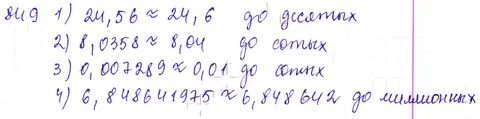 849 1) 24,56 ≈ 24,6 до десятых
2) 8,0358 ≈ 8,04 до сотых
3) 0,007289 ≈ 0,01 до сотых
4) 6,848641975 ≈ 6,848642 до миллионных